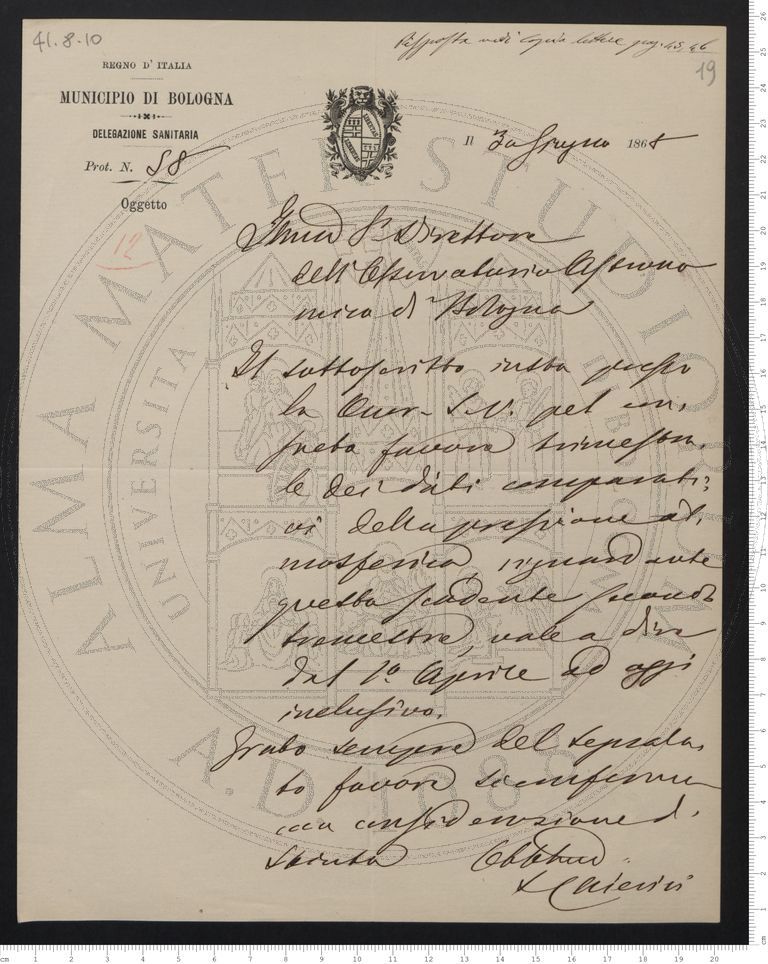 41.8.10
Risposta vedi Copia lettere pag. 45, 46
19
REGNO D'ITALIA
MUNICIPIO DI BOLOGNA
DELEGAZIONE SANITARIA
Prot. N. 58
Oggetto
12
Il 30 Giugno 1868
Illmo Sr. Direttore
dell'Osservatorio Astrono
mico di Bologna
Il sottoscritto insta presso
la Onor. S.V. pel con,
sueto favore trimestra,
le dei dati comparati,
vi della pressione at,
mosferica, riguardante
questo scadente secondo
trimestre, vale a dire
dal 1o. Aprile ad oggi
inclusivo.
Grato sempre del segnala,
to favore si conferma
con considerazione di,
stinta Obbtmo
ALMA MATER STUDIORUM
UNIVERSITA
A.D. 1088